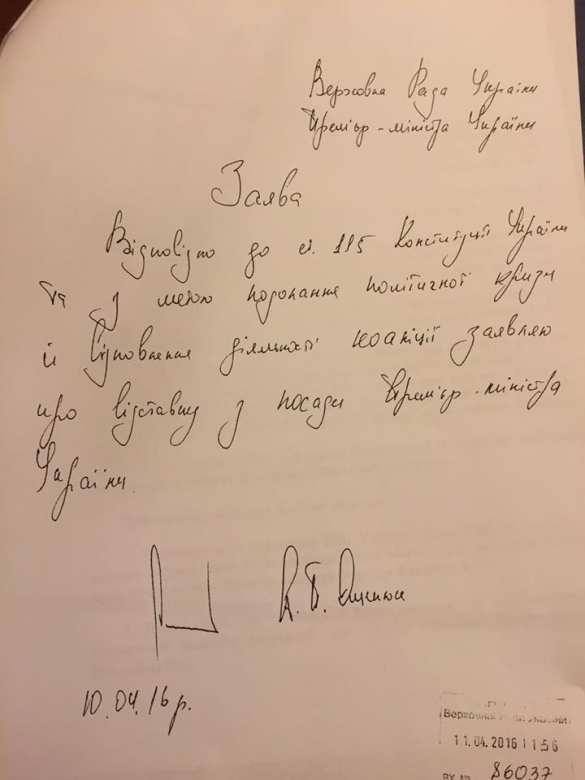 Верховна Рада України
Прем'єр-міністра України
Заява
Відповідно до ст. 115 Конституції України
та з метою подолання політичної кризи
й відновлення діяльності коаліції заявляю
про відставку з посади Прем'єр-міністра
України.
А. П. Яценюк
10.04.16р.
Верховна
11.04.2016 11 56
86037